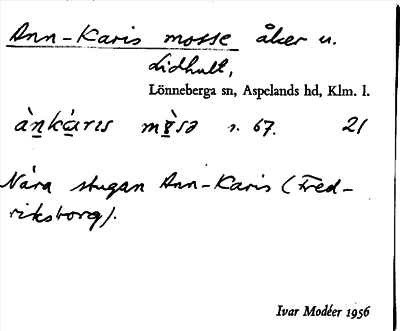 Ann-Karis mosse åker u.
Lidhult,
Lönneberga sn, Aspelands hd, Klm. l.
àn̲ká̲rıs mɤ̲̀sə r. 67. 21
Nära stugan Ann-Karis (Fred-
riksborg).
Ivar Modéer 1956